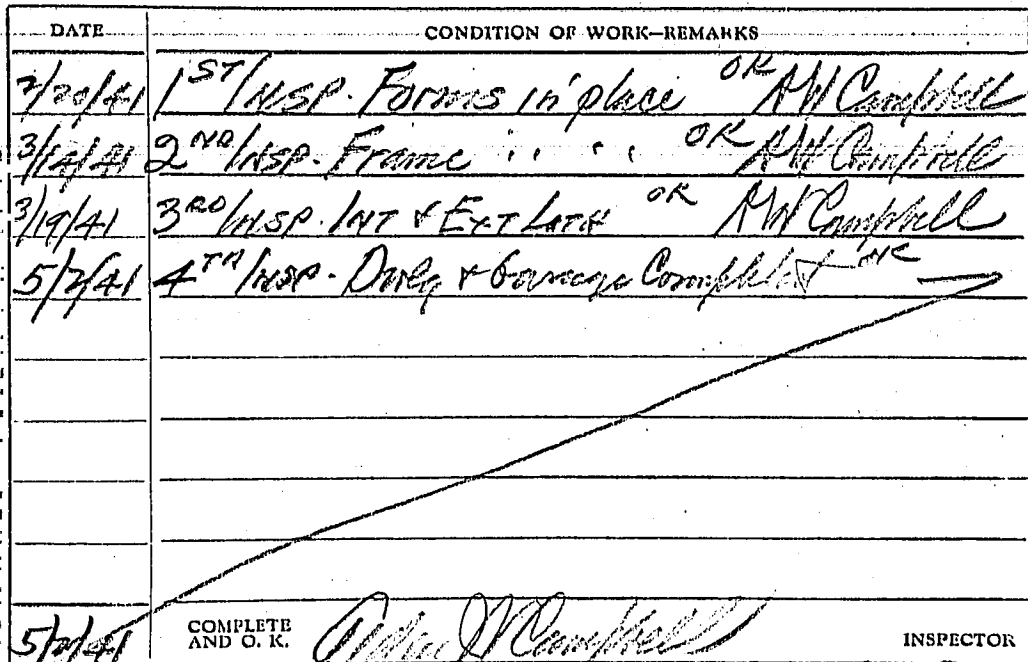 DATE CONDITION OF WORK—REMARKS
2/20/41 1ST INSP. Forms in place OK AW Campbell
3/14/41 2ND INSP. Frame " " OK AW Campbell
3/19/41 3RD INSP. INT & EXT LATH OK AW Campbell
5/2/41 4TH INSP. Dwlg & Garage Complete OK
5/2/41 COMPLETE AND O. K. W Campbell INSPECTOR